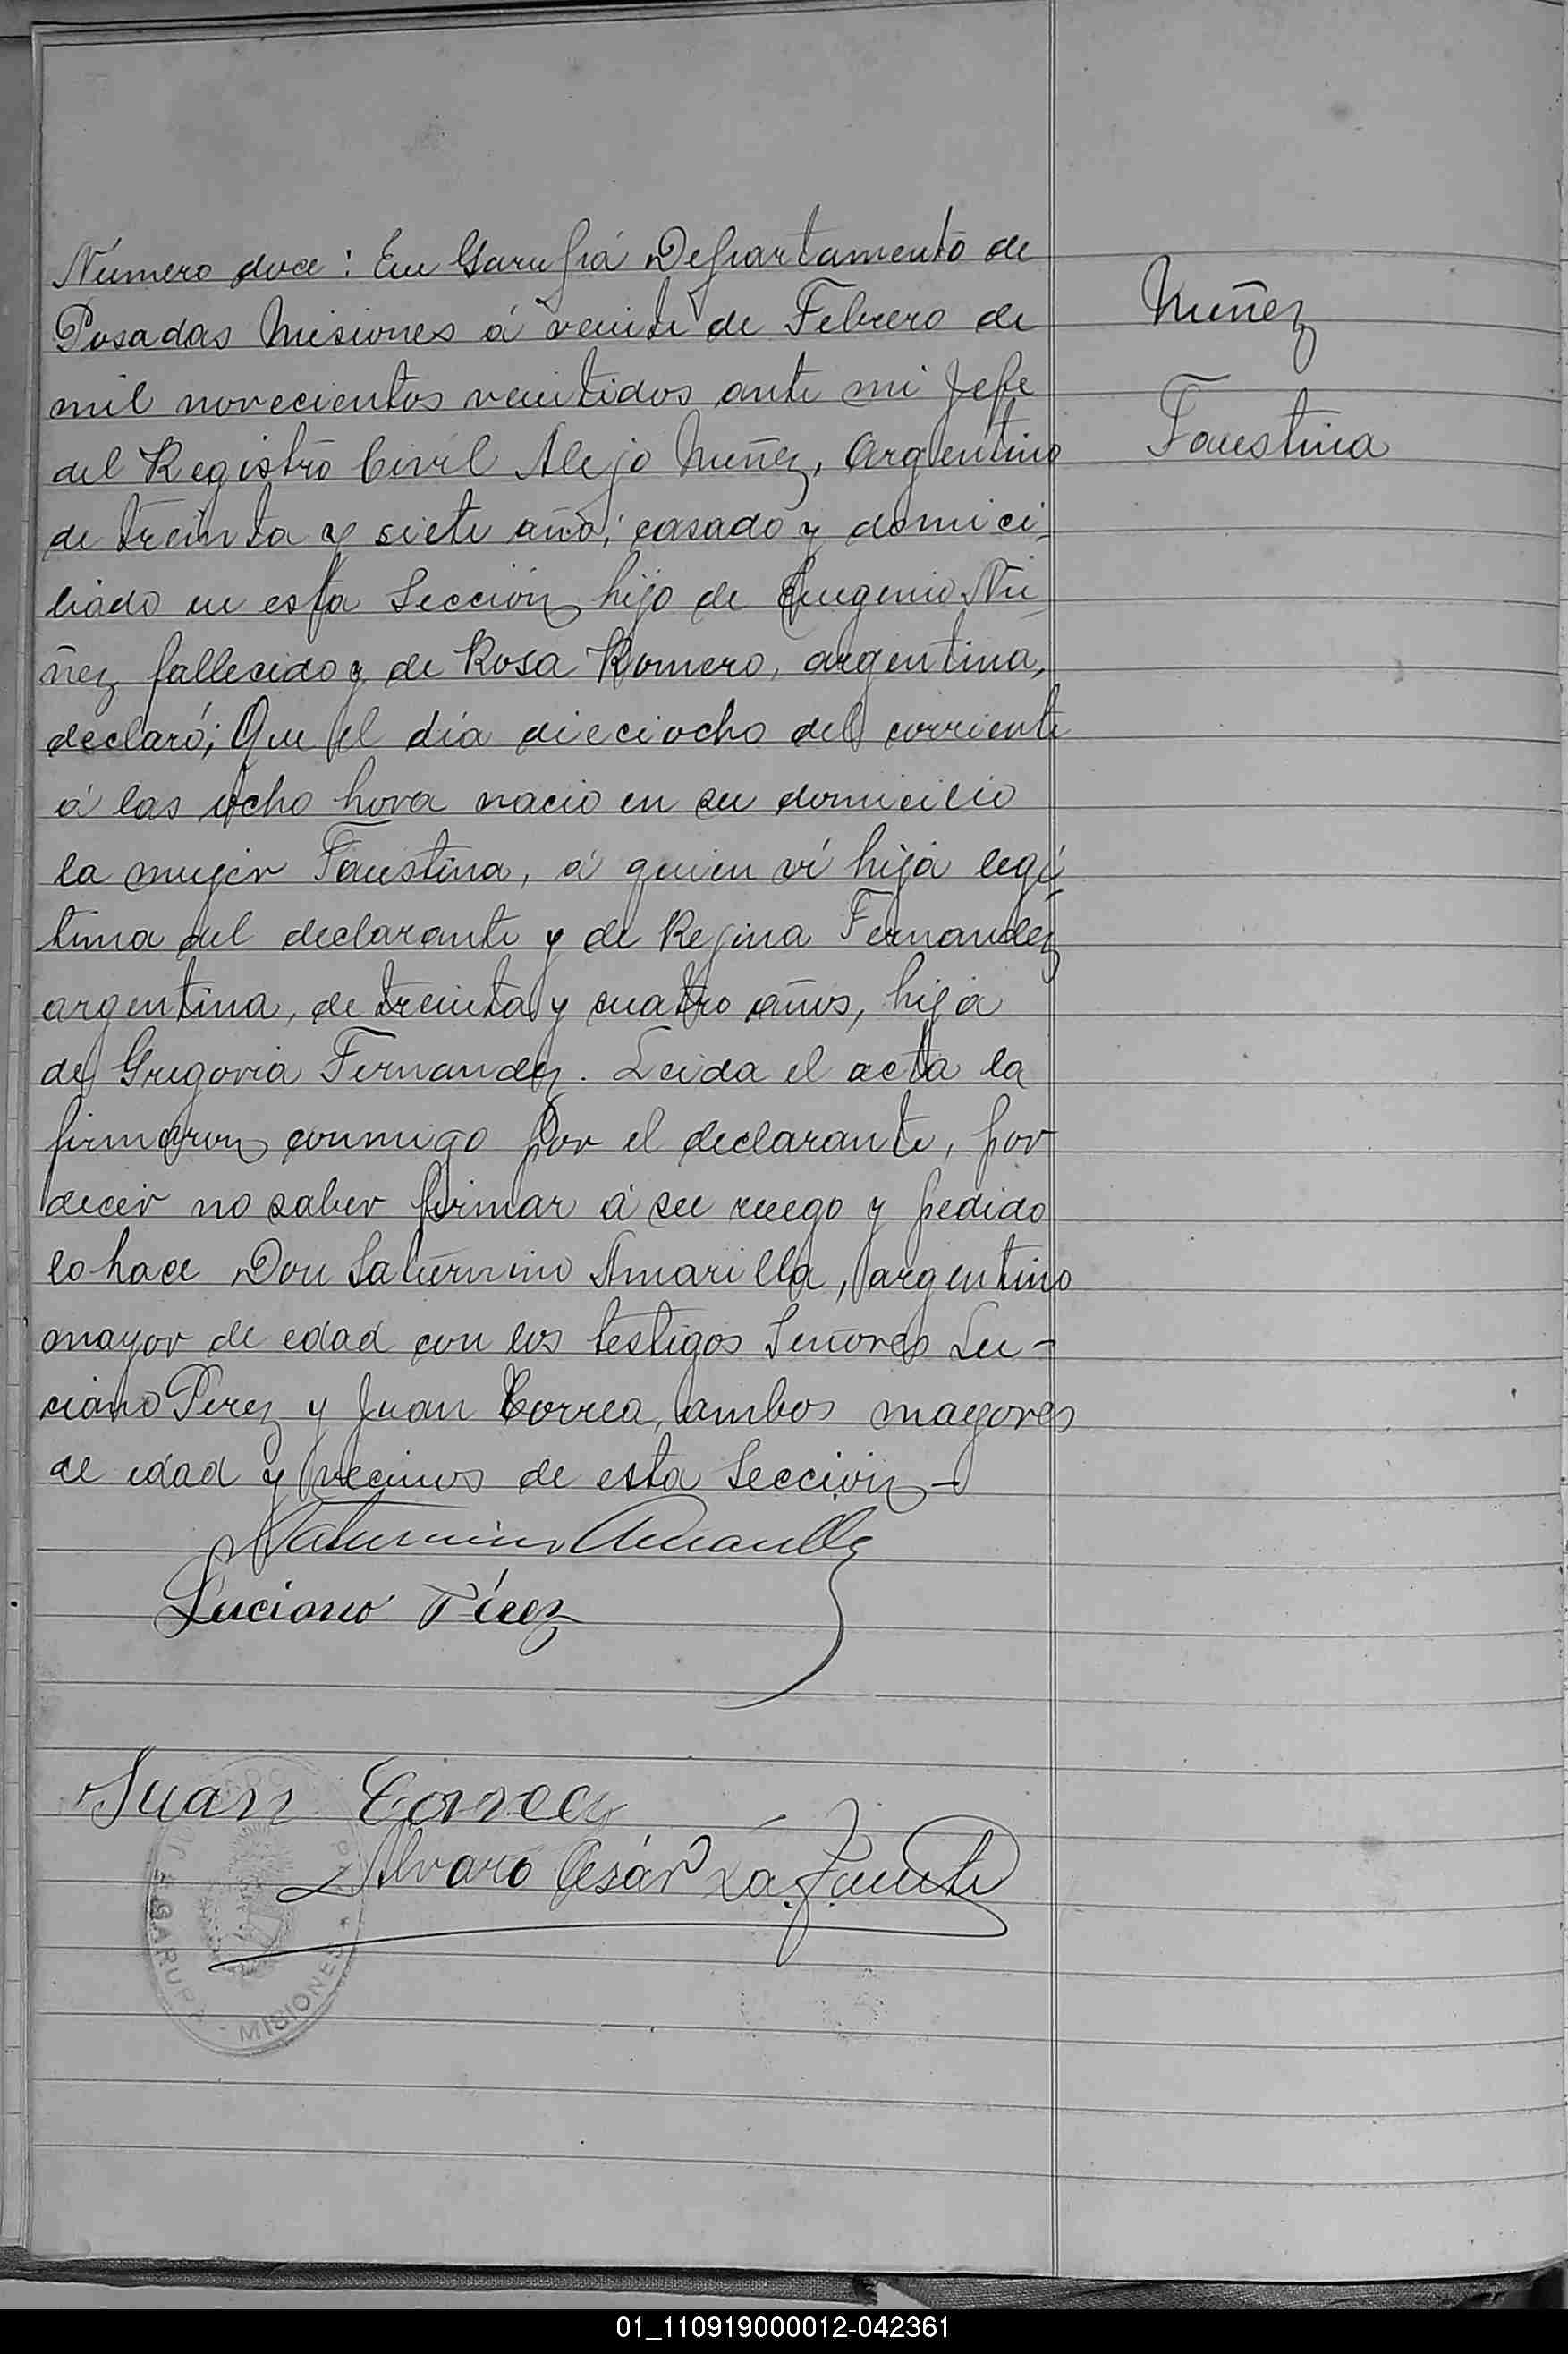 Numero doce: En Garupá Departamento de
Posadas Misiones á veinte de Febrero de
mil novecientos veintidos ante mi Jefe
del Registro Civil Alejo Nuñez, Argentino
de treinta y siete año; casado y domici-
liado en esta Sección hijo de Eugenio Nu-
ñez fallecido y de Rosa Romero, argentina,
declaró; Que el día dieciocho del corriente
á las ocho hora nacio en su domicilio
la mujer Faustina, á quien ví hija legí-
tima del declarante y de Regina Fernandez
argentina, de treinta y cuatro años, hija
de Gregoria Fernandez. Leida el acta la
firmaron conmigo por el declarante, por
decir no saber firmar á su ruego y pedido
lo hace Don Saturnino Amarilla, argentino
mayor de edad con los testigos Señores Lu-
ciano Perez y Juan Correa, ambos mayores
de edad y vecinos de esta Sección-
Saturnino Amarilla
Luciano Pérez
Juan Correa
Alvaro César La Fuente
Nuñez
Faustina
JUZGADO DE
GARUPÁ - MISIONES
01_110919000012-042361